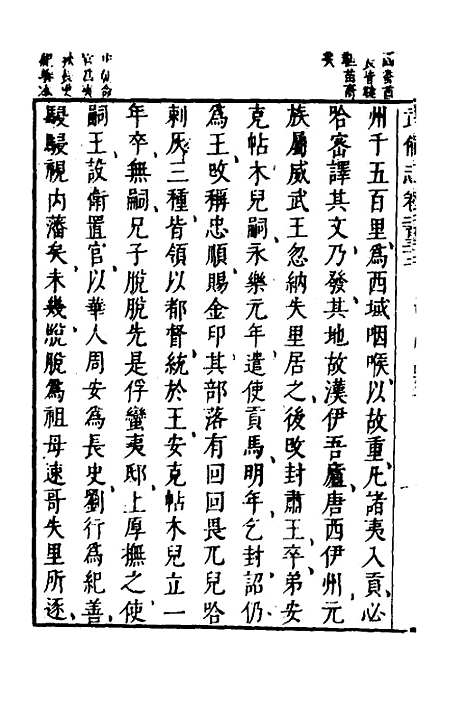 武備志卷
州千五百里爲西域咽喉以故重凡諸夷入貢必
哈密譯其文乃發其地故漢伊吾廬唐西伊州元
族屬威武王忽納失里居之後改封肅王卒弟安
克帖木兒嗣永樂元年遣使貢馬明年乞封詔仍
爲王改稱忠順賜金印其部落有回回畏兀兒哈
剌灰三種皆領以都督統於王安克帖木兒立一
年卒無嗣兄子脫脫先是俘蠻夷邸上厚撫之使
嗣王設衛置官以華人周安爲長史劉行爲紀善
駸駸視內藩矣未幾脫脫爲祖母速哥失里所逐